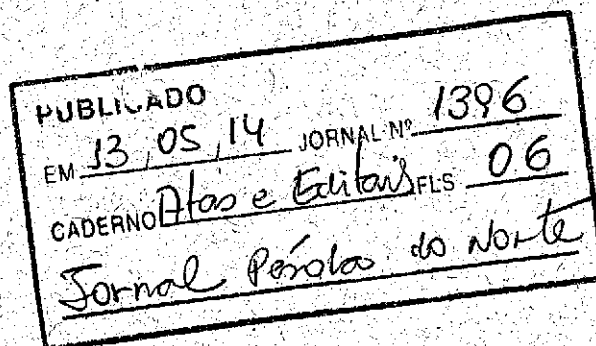 PUBLICADO
EM 13,05,14 JORNAL Nº 1396
CADERNO Atos e Editais FLS 06
Jornal Pérola do Norte